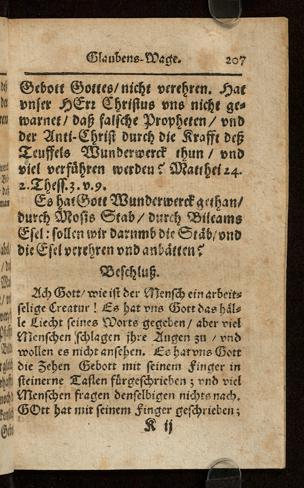 Glaubens-Wage. 207
Gebott Gottes/ nicht verehren. Hat
vnser HErr Christus vns nicht ge-
warnet/ daß falsche Propheten/ vnd
der Anti-Christ durch die Krafft deß
Teuffels Wunderwerck thun/ vnd
viel verführen werden? Matthei 24.
2. Thess. 3. v. 9.
Es hat Gott Wunderwerck gethan/
durch Mosis Stab/ durch Bileams
Esel: sollen wir darumb die Stäb/ vnd
die Esel verehren vnd anbätten?
Beschluß.
Ach Gott/ wie ist der Mensch ein arbeit-
selige Creatur! Es hat vns Gott das häl-
le Liecht seines Worts gegeben/ aber viel
Menschen schlagen ihre Augen zu/ vnd
wollen es nicht ansehen. Es hat vns Gott
die Zehen Gebott mit seinem Finger in
steinerne Taflen fürgeschrieben; vnd viel
Menschen fragen denselbigen nichts nach.
GOtt hat mit seinem Finger geschrieben;
K ij